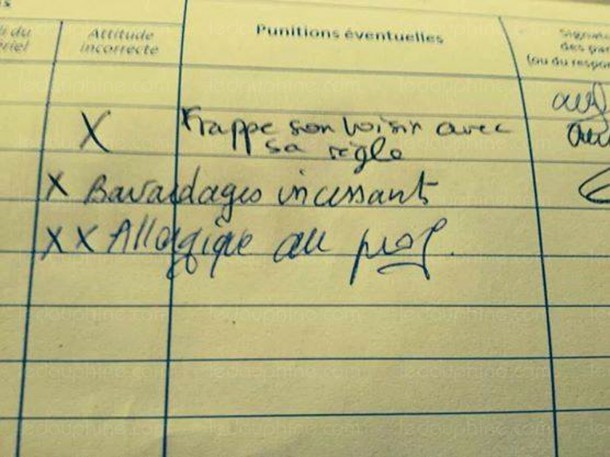 Attitude
incorrecte
Punitions éventuelles
des par
(ou du respon
X
Frappe son voisin avec
sa règle
X Bavardages incessants
XX Allergique au prof.